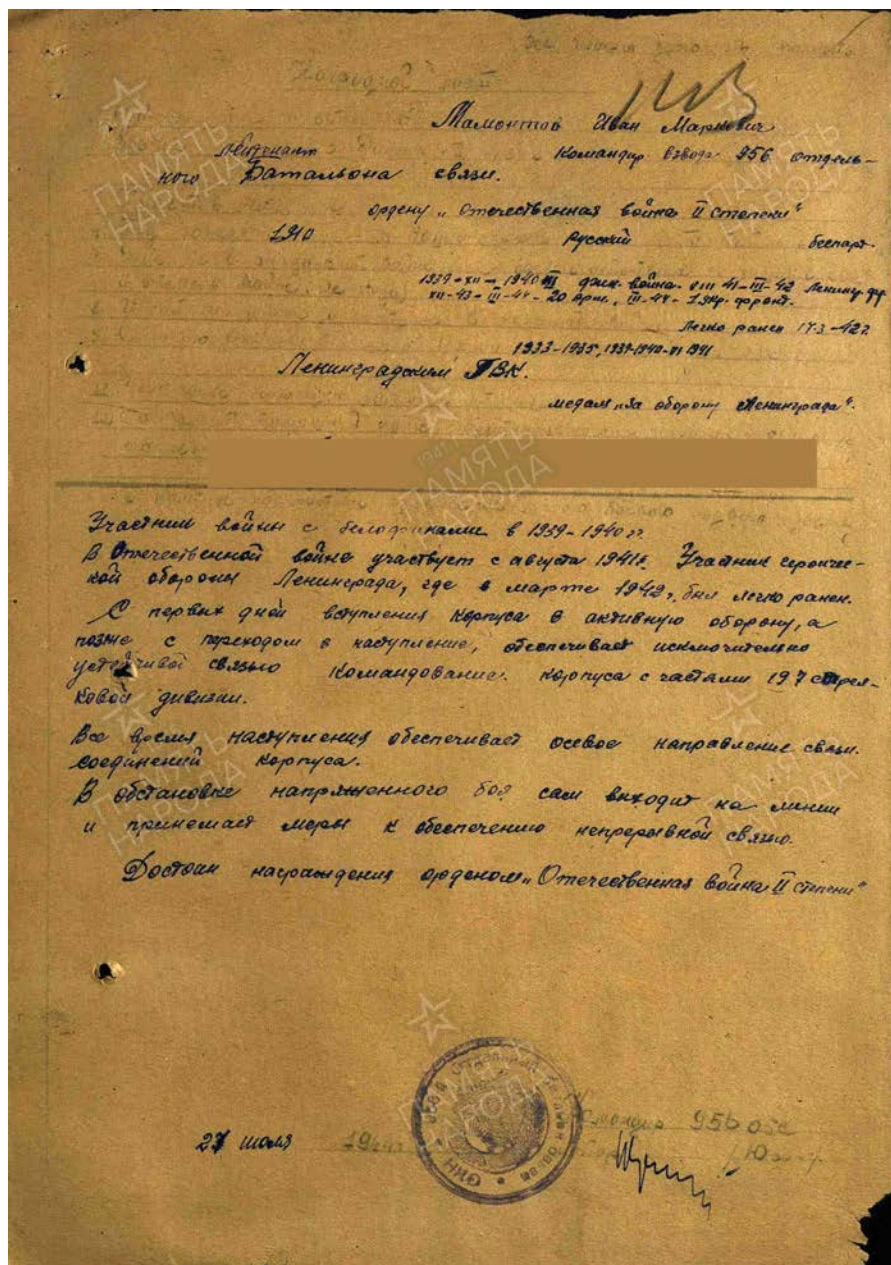 Наградной лист
Мамонтов Иван Маркович
лейтенант Командир взвода 956 отдель-
ного Батальона связи.
ордену „Отечественная война II степени"
1910 русский беспарт.
1939-XII-1940 III фин. война. VIII 41-III-42 Ленингр. фр
XII-43-III-44-20 арм., III-44-1 Укр. фронт.
Легко ранен 17.3-42 г.
1933-1935, 1939-1940-VI 1941
Ленинградским ГВК.
медаль „за оборону Ленинграда".
Участник войны с белофинами в 1939-1940 гг.
В Отечественной войне участвует с августа 1941 г. Участник героичес-
кой обороны Ленинграда, где в марте 1942 г. был легко ранен.
С первых дней вступления Корпуса в активную оборону, а
позже с переходом в наступление, обеспечивает исключительно
устойчивой связью Командование корпуса с частями 197 стрел-
ковой дивизии.
Все время наступления обеспечивает осевое направление связи.
соединений Корпуса.
В обстановке напряженного боя сам выходит на линии
и принемает меры к обеспечению непрерывной связью.
Достоин награждения орденом „Отечественная война II степени"
Командир 956 обс
27 июля 194
ПАМЯТЬ НАРОДА